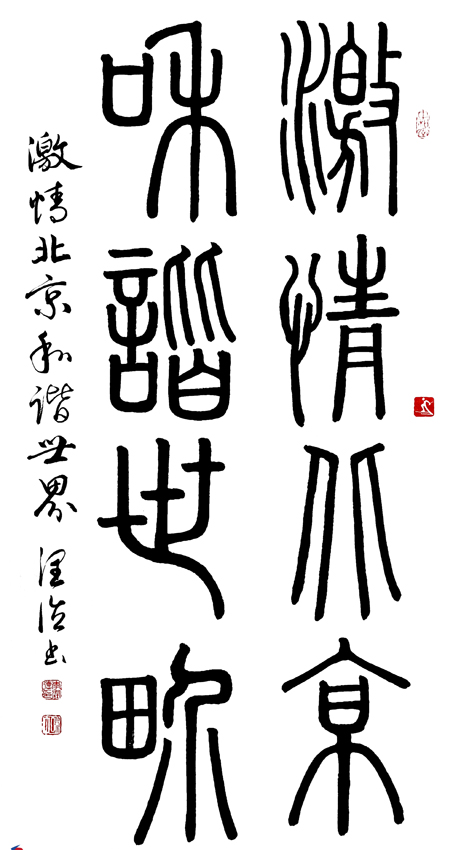 激情北京
和諧世界
激情北京和谐世界 书